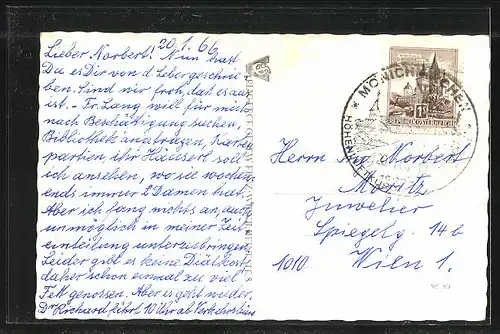 20.1.66
Lieber Norbert! Nun hast
Du es Dir von d. Leber geschrie
ben. Sind wir froh, daß es aus
ist. – Fr. Lang will für mich
nach Beschäftigung suchen,
Bibliothek anfragen, Karten
partien, ihr Häuserl soll
ich ansehen, wo sie wochen
ends immer 2 Damen hat.
Aber ich fang nichts an, auch
unmöglich in meiner Zeit
einteilung unterzubringen.
Leider gibt es keine Diätkost,
daher schon einmal zu viel
Fett genossen. Aber es geht wieder.
Dr Richard fährt 10 Uhr ab Verkehrsbüro
MÖNICHKIRCHEN
REPUBLIK ÖSTERREICH
Herrn Ing. Norbert
Moritz
Juwelier
Spiegelg. 14 b
1010 Wien 1.